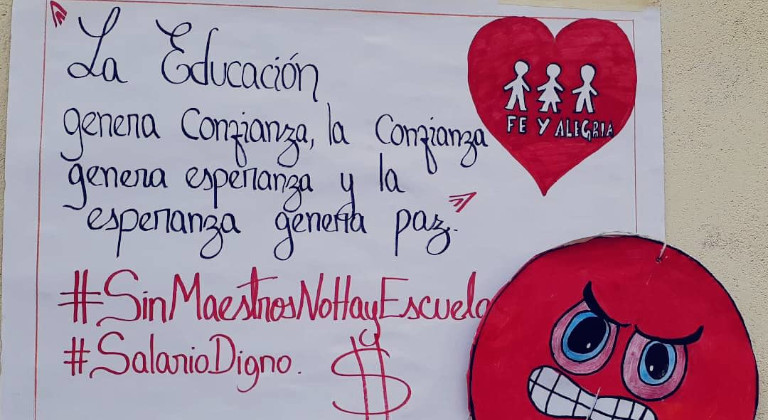 La Educación
genera Confianza, la Confianza
genera esperanza y la
esperanza genera paz.
#SinMaestrosNoHayEscuela
#SalarioDigno. $
FE Y ALEGRIA